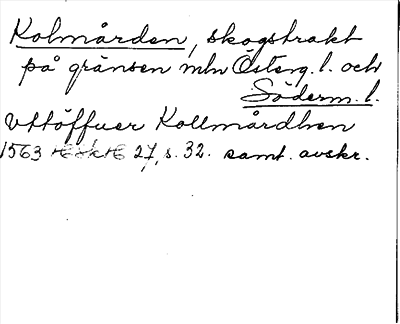 Kolmården, skogstrakt
på gränsen mln Österg. l. och
Söderm. l.
Vttöffuer Kollmårdhen
1563 27, s. 32. samt. avskr.